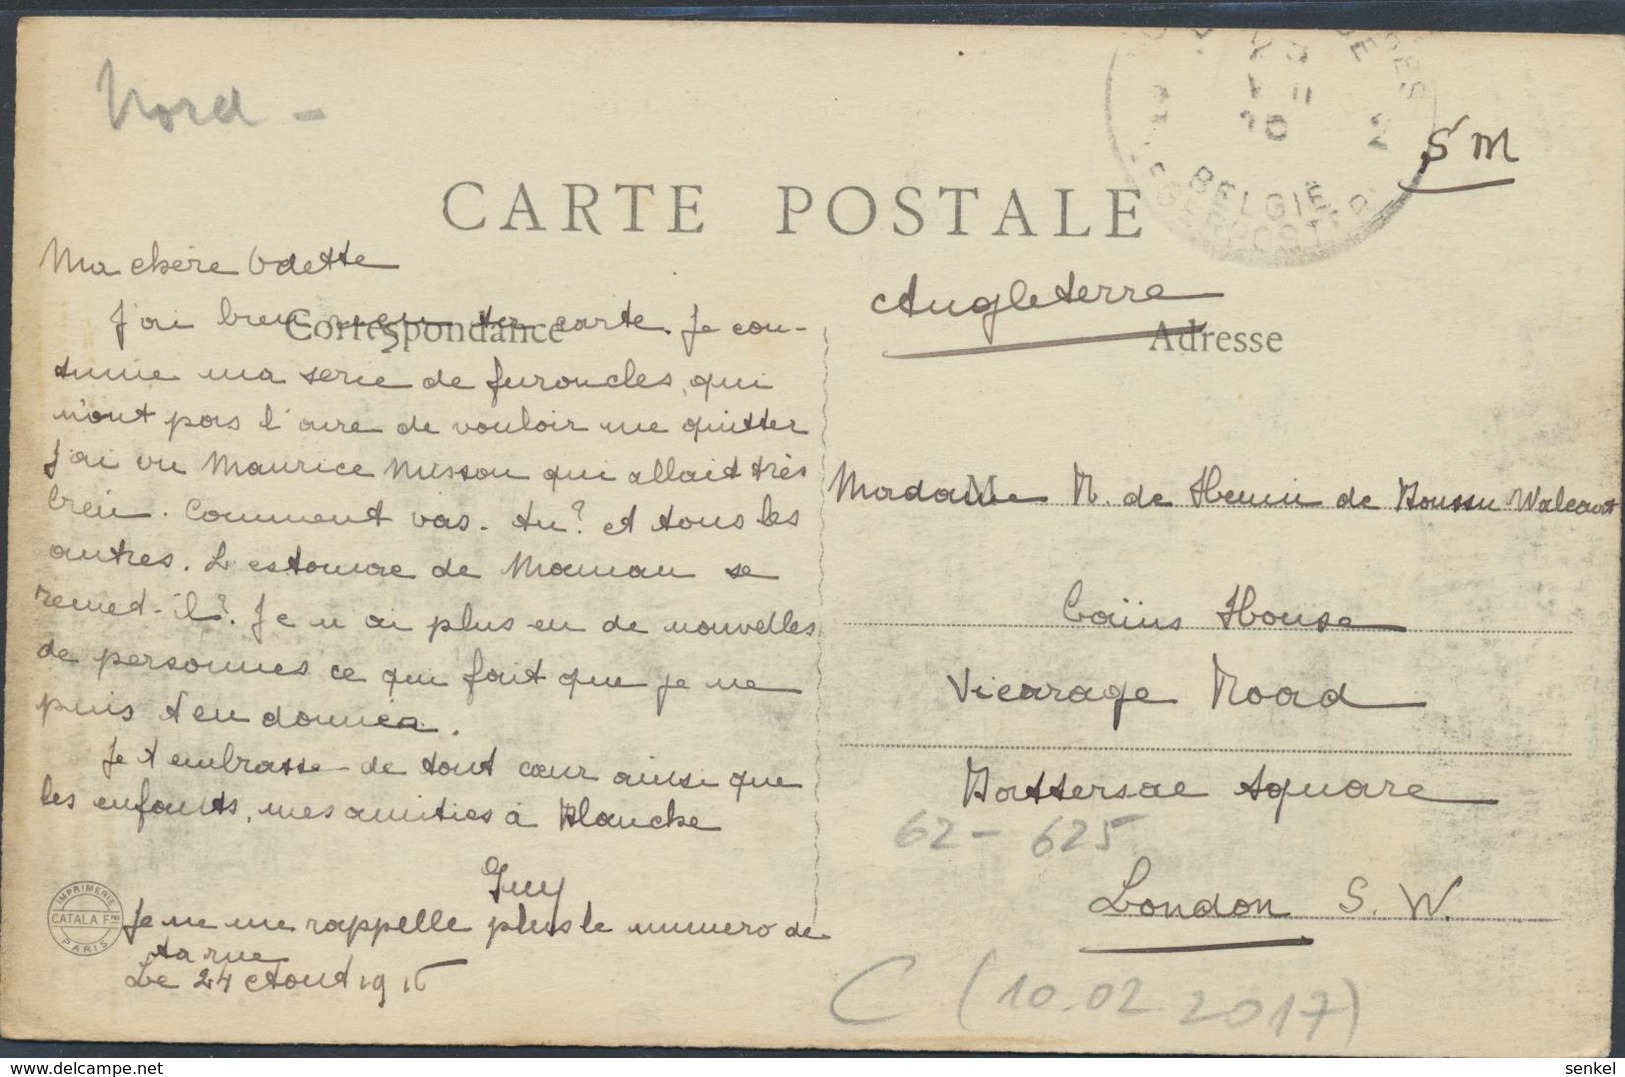 Nord -
S M
BELGIË
CARTE POSTALE
Correspondance
Adresse
Ma chère Odette
J'ai bien reçu ta carte. Je con-
tinue ma serie de furoncles, qui
n'ont pas l'aire de vouloir me quitter
J'ai vu Maurice Nisson qui allait très
bien. Comment vas-tu? et tous les
autres. L'estomac de Maman se
remet-il? Je n'ai plus eu de nouvelles
de personnes ce qui fait que je ne
puis t'en donner.
Je t'embrasse de tout cœur ainsi que
les enfants, mes amities à Blanche
Guy
Je ne me rappelle plus le numero de
ta rue
Le 24 Aout 1916
IMPRIMERIE
CATALA F
PARIS
Angleterre
Madame R. de Henin de Boussu Walcourt
Caïus House
Vicarage Road
Battersae Square
62 - 625
London S. W.
C (10.02.2017)
delcampe.net
senkel